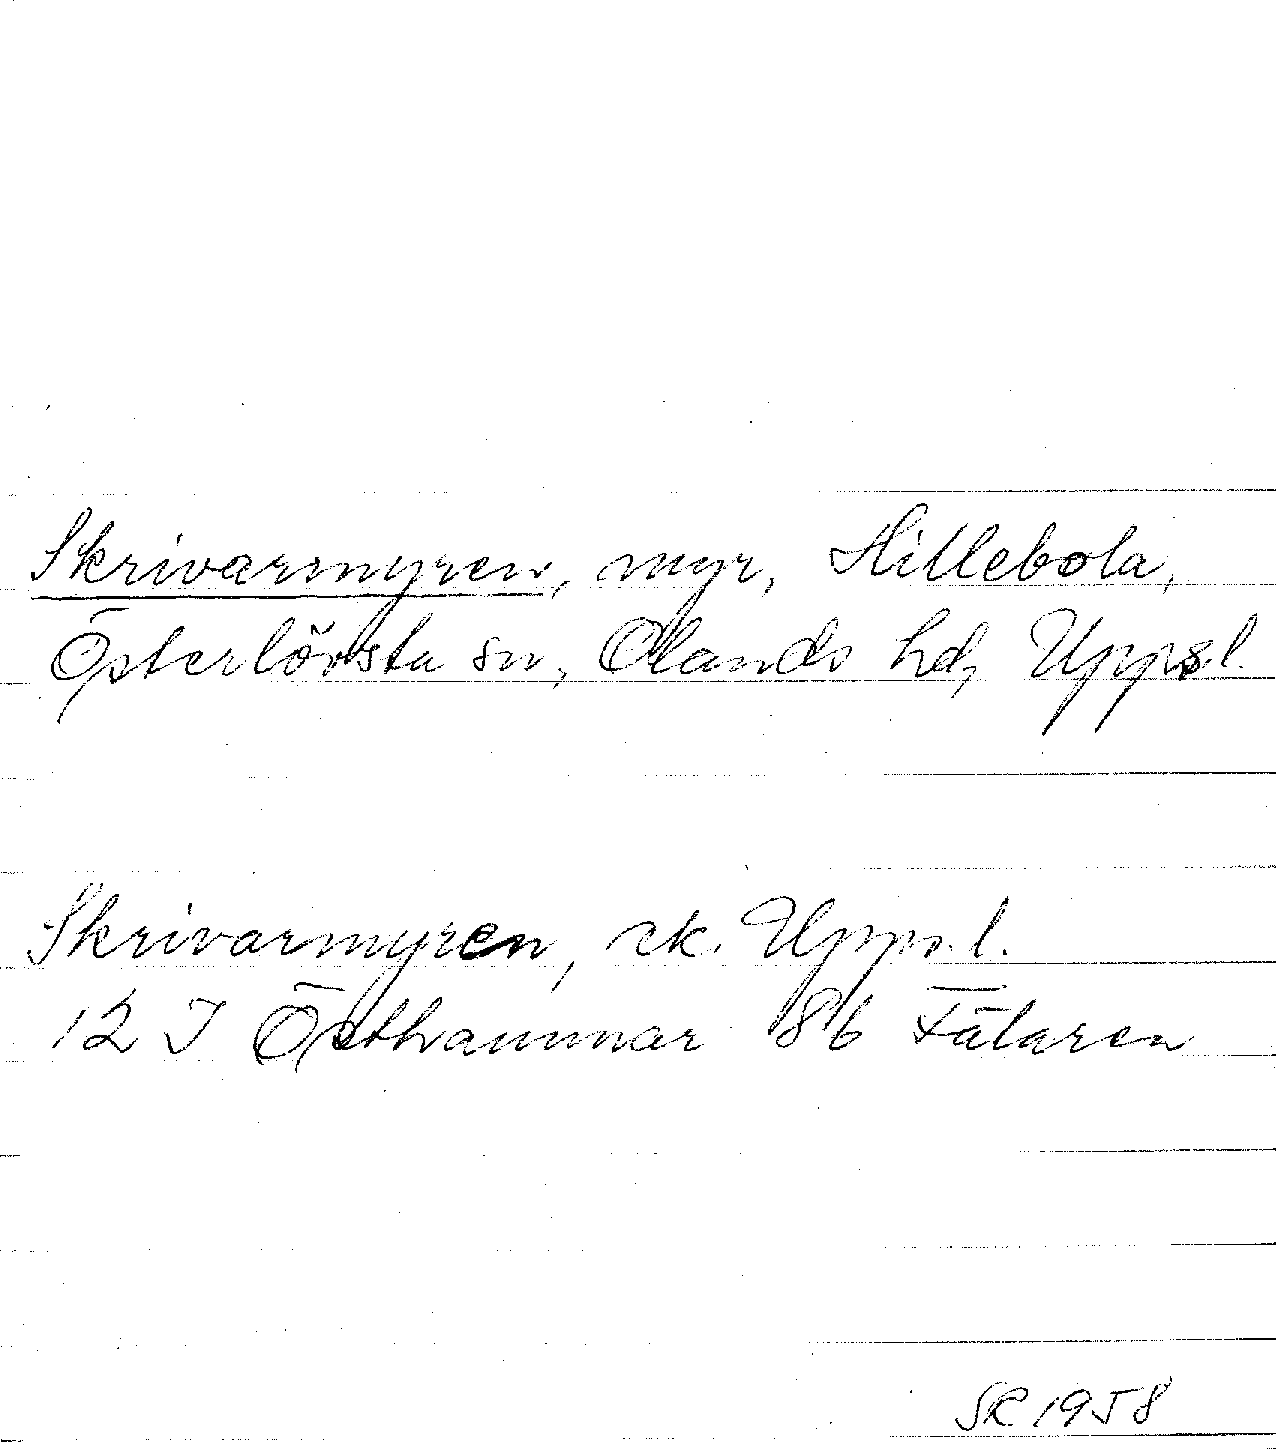 Skrivarmyren, myr, Hillebola,
Österlövsta sn, Olands hd, Uppsl.
Skrivarmyren, ek. Uppsl.
12 I Östhammar 8b Fälaren
SR 1958